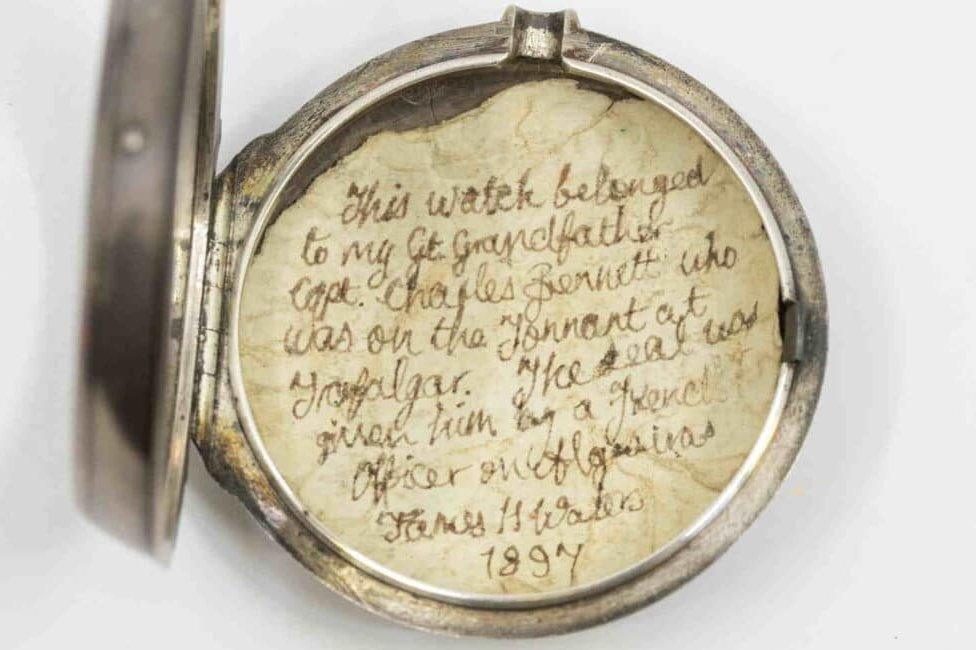 This watch belonged
to my Gt. Grandfather
Capt. Charles Bennett who
was on the Tonnant at
Trafalgar. The seal was
given him by a French
Officer on
James H Waters
1897